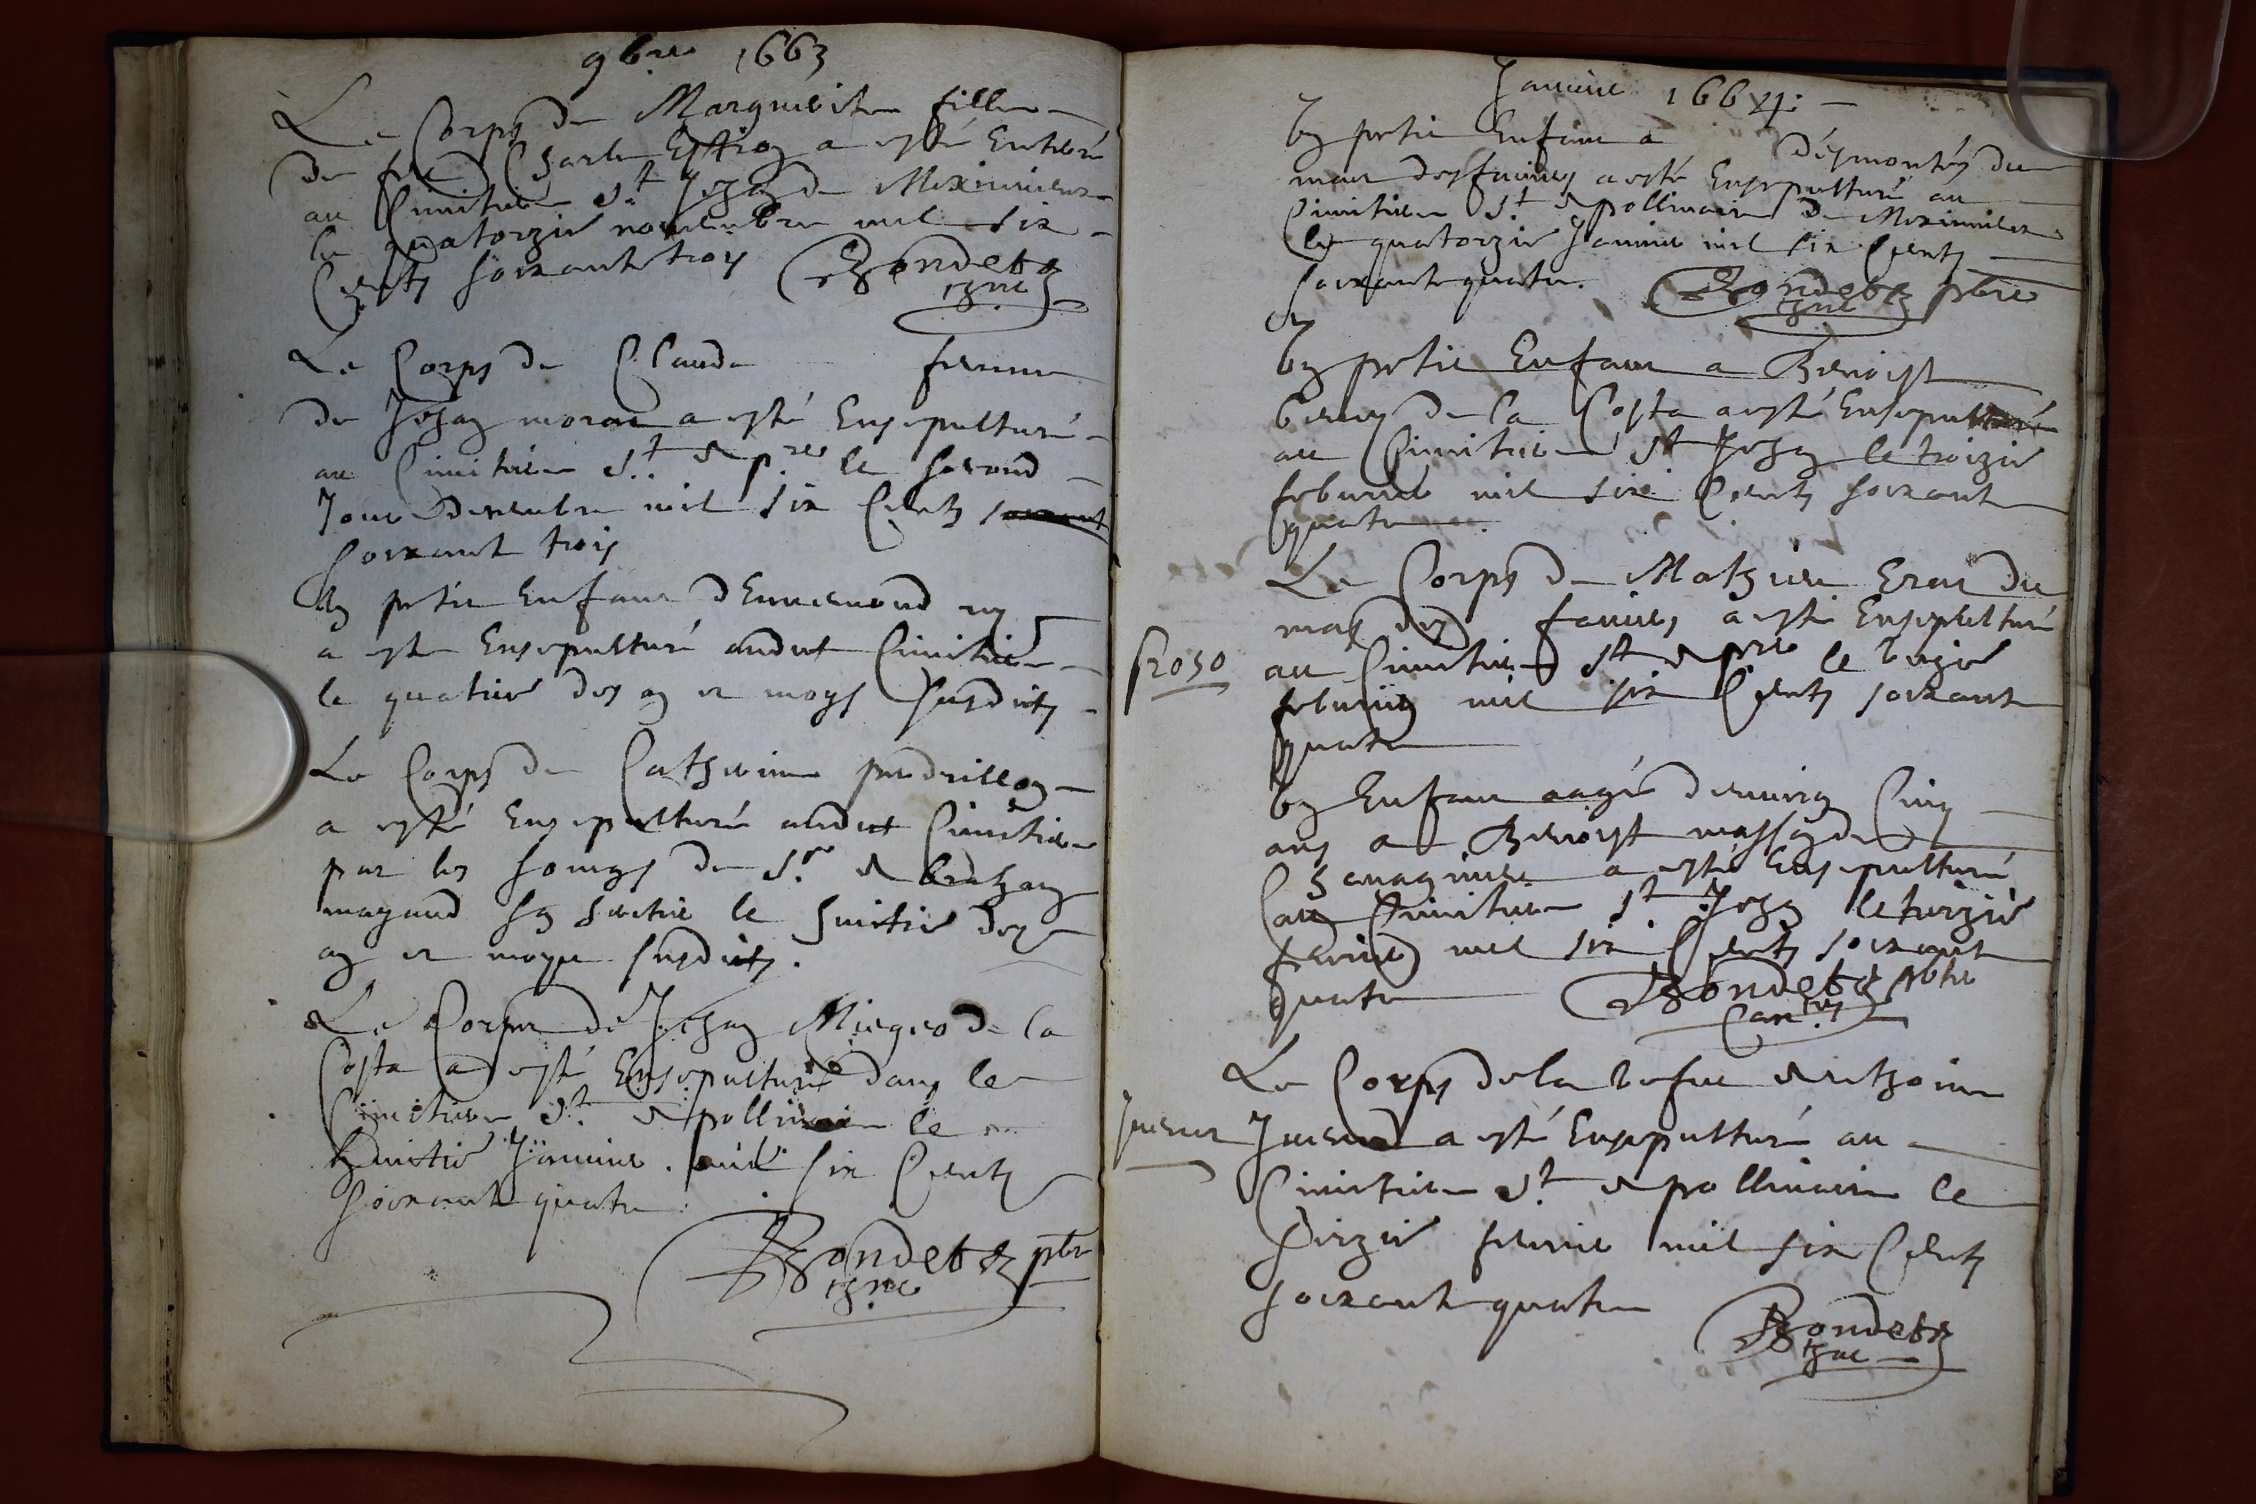 9bre 1663
Le Corps de Marguerite fille
de feu Charle a esté Enterré
au Cimitiere St Jehan de Meximieux
le quatorzie novembre mil six
Cents soixante troys Bondet
Le Corps de Clauda femme
de Jehan morat a esté Ensepulturé
au Cimitiere St Apre le second
Jour decembre mil six Cents
soixante trois
Un petit Enfant d'Ennemond
a esté Ensepulturé audit Cimitiere
le quatrie des an et moys susdits
Le Corps de Catherine perdrillon
a esté Ensepulturé audit Cimitiere
par les soings de Sr Anthoine
magaud le huitie des
an et moys susdits.
Le Corps de Jehan Miegeo de la
Costa a esté Ensepulturé dans le
Cimitiere St Apollinaire le
huitie Janvier mil six Cents
soixante quatre
Bondet pbre
Janvier 1664
Un petit Enfant a desmontés du
mas des fouives a esté Ensepulturé au
Cimitiere St Apollinaire de Meximieux
le quatorzie Janvier mil six Cents
soixante quatre. Bondet pbre
Un petit Enfant a Benoist
de la Costa a esté Ensepulturé
au Cimitiere St Jehan le troizie
feburier mil six Cents soixante
quatre
Le Corps de Mathieu Erau du
mas des a esté Ensepulturé
au Cimitiere St Apre le
feburier mil six Cents soixante
quatre
Un Enfant aagé d'environ Cinq
ans a Benoist de
a esté Ensepulturé
au Cimitiere St Jehan le
febvrier mil six Cents soixante
quatre Bondet pbre
Le Corps de la vefve Anthoine
Juenet a esté Ensepulturé au
Juenet
Cimitiere St Apollinaire le
febvrier mil six Cents
soixante quatre
Bondet